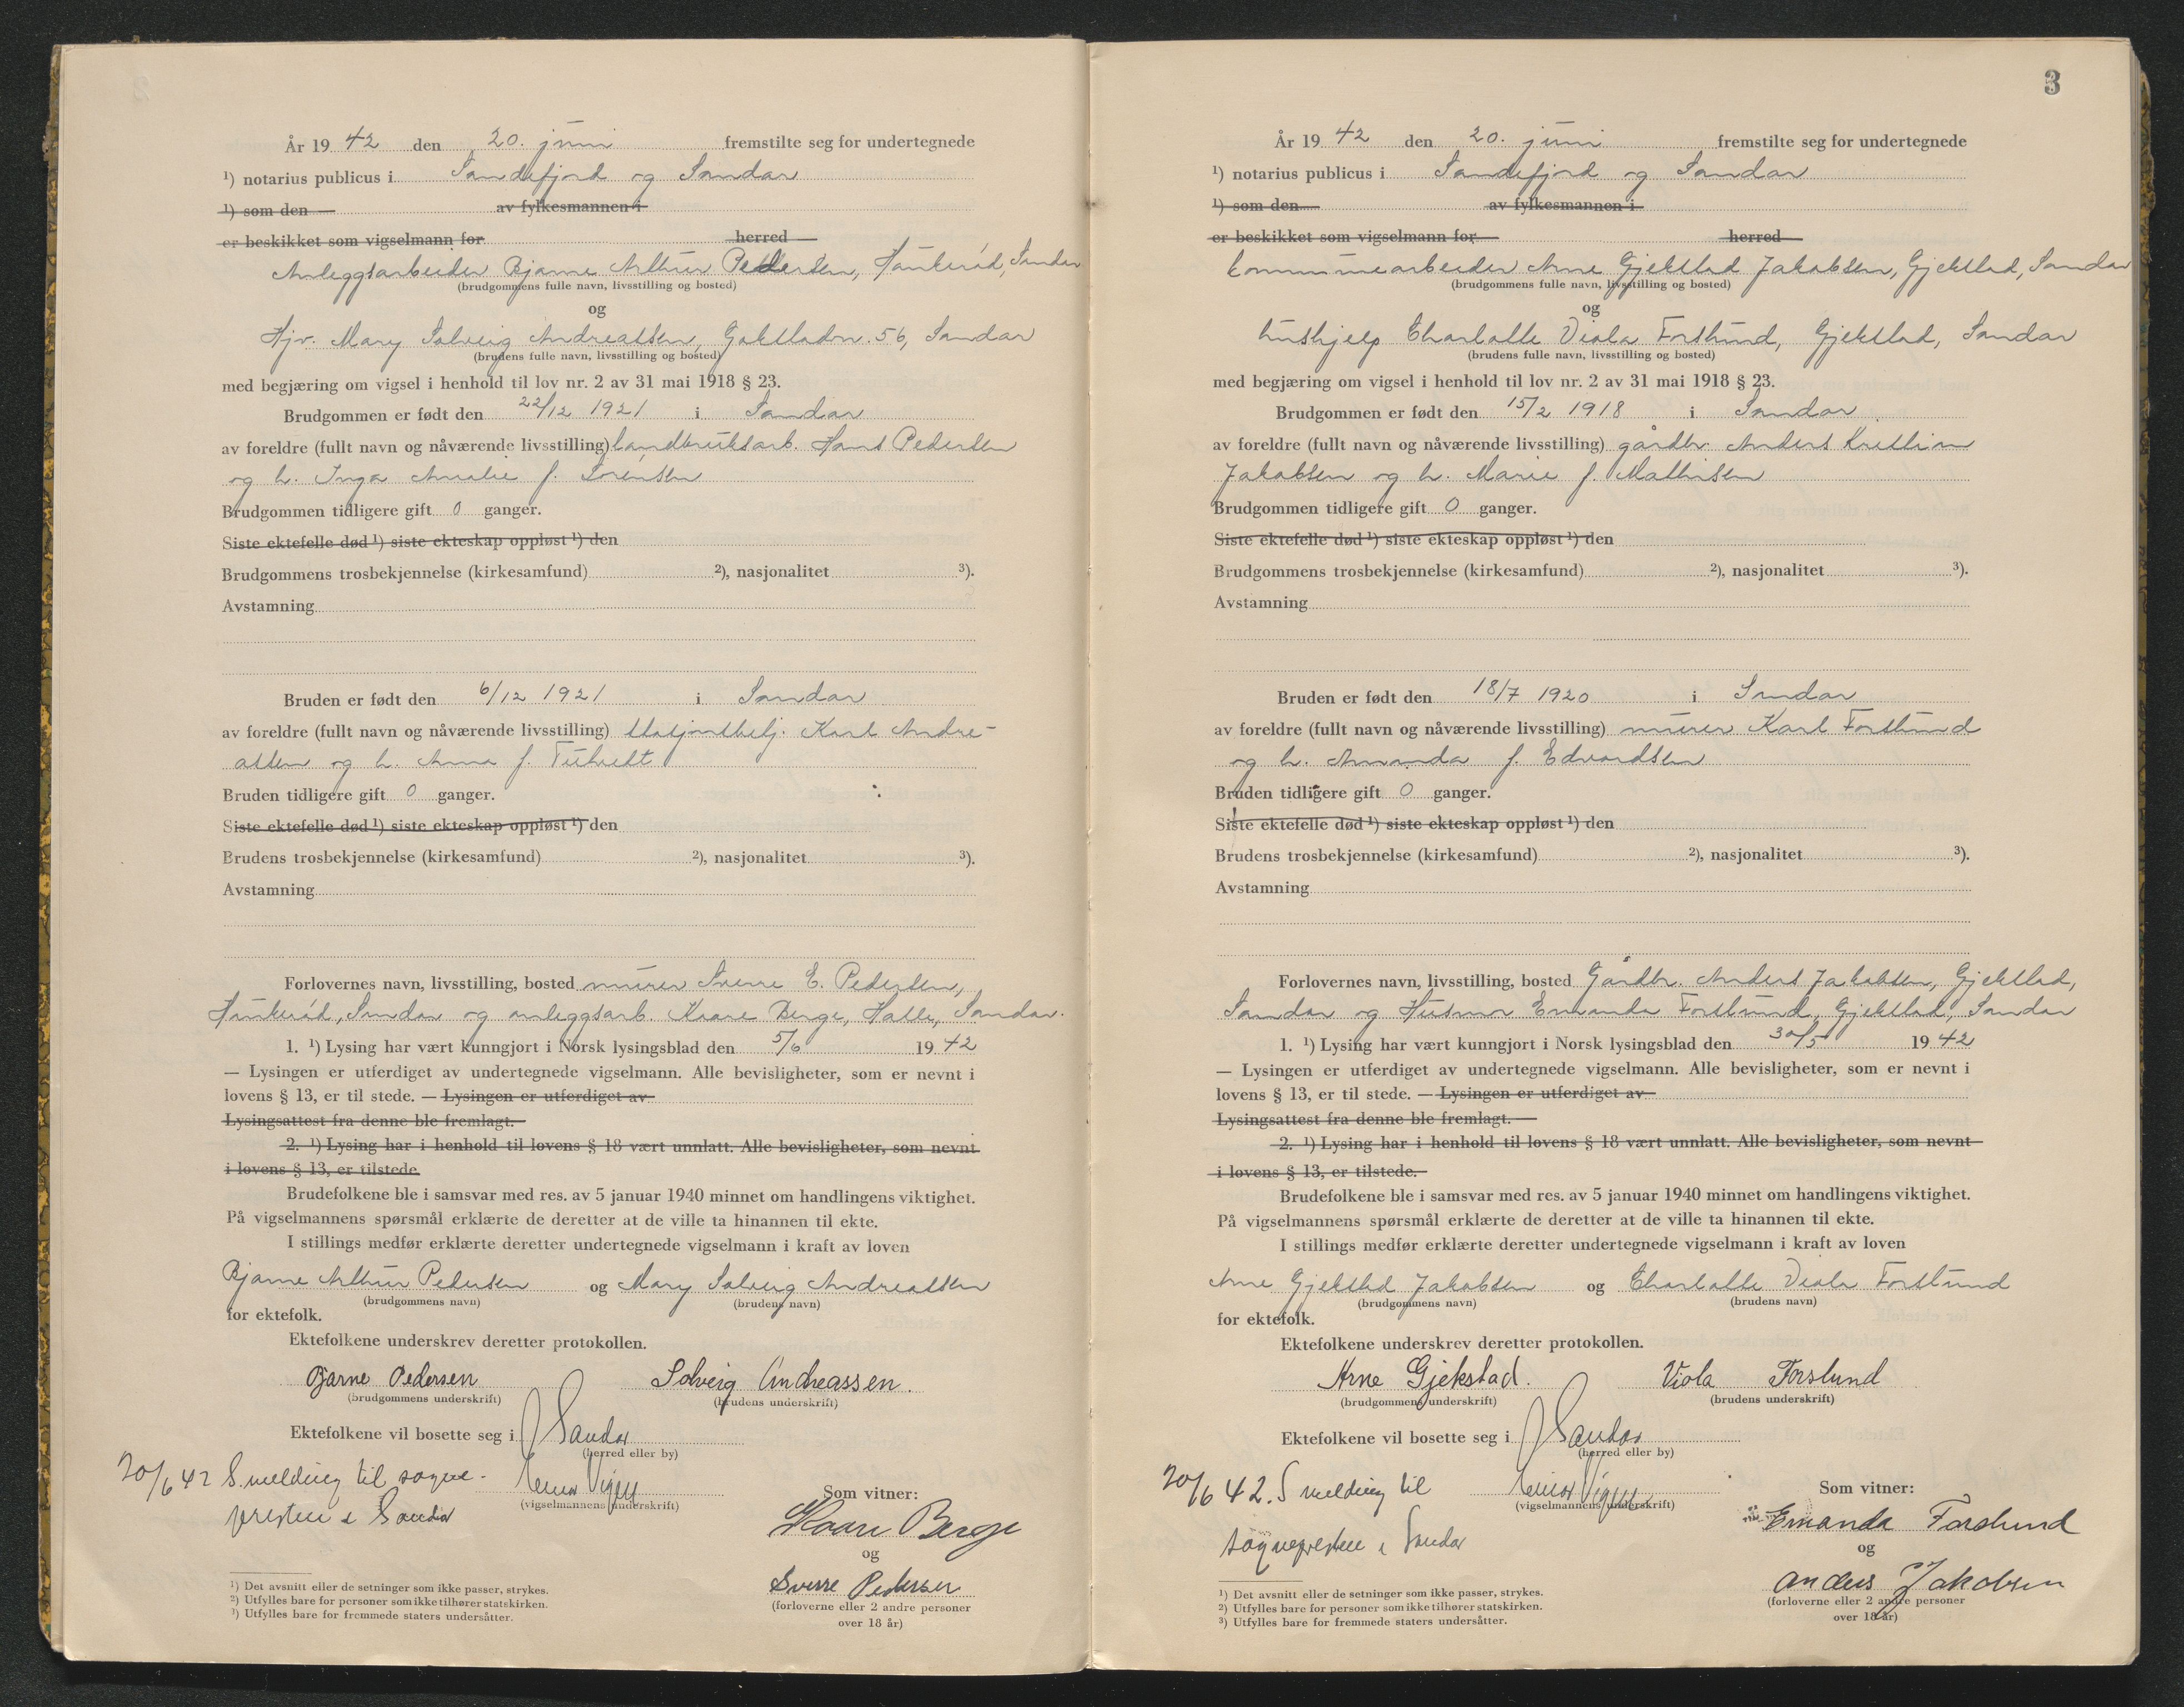 År 19 42 den 20. juni fremstilte seg for undertegnede
¹) notarius publicus i Sandefjord og Sandar
¹) som den av fylkesmannen i
er beskikket som vigselmann for herred
Anleggsarbeider Bjarne Arthur Pedersen, Haukerød, Sandar
(brudgommens fulle navn, livsstilling og bosted)
og
Hjv. Mary Solveig Andreassen, Gokstadv. 56, Sandar
(brudens fulle navn, livsstilling og bosted)
med begjæring om vigsel i henhold til lov nr. 2 av 31 mai 1918 § 23.
Brudgommen er født den 22/12 1921 i Sandar
av foreldre (fullt navn og nåværende livsstilling) landbruksarb. Hans Pedersen
og h. Inga Amalie f. Sørensen
Brudgommen tidligere gift 0 ganger.
Siste ektefelle død ¹) siste ekteskap oppløst ¹) den
Brudgommens trosbekjennelse (kirkesamfund) ²), nasjonalitet ³).
Avstamning
Bruden er født den 6/12 1921 i Sandar
av foreldre (fullt navn og nåværende livsstilling) stasjonsbetj. Karl Andre-
assen og h. Anna f.
Bruden tidligere gift 0 ganger.
Siste ektefelle død ¹) siste ekteskap oppløst ¹) den
Brudens trosbekjennelse (kirkesamfund) ²), nasjonalitet ³).
Avstamning
Forlovernes navn, livsstilling, bosted murer Sverre E. Pedersen,
Haukerød, Sandar og anleggsarb. Kaare Berge, Hasle, Sandar.
1. ¹) Lysing har vært kunngjort i Norsk lysingsblad den 5/6 19 42
— Lysingen er utferdiget av undertegnede vigselmann. Alle bevisligheter, som er nevnt i
lovens § 13, er til stede. — Lysingen er utferdiget av
Lysingsattest fra denne ble fremlagt.
2. ¹) Lysing har i henhold til lovens § 18 vært unnlatt. Alle bevisligheter, som nevnt
i lovens § 13, er tilstede.
Brudefolkene ble i samsvar med res. av 5 januar 1940 minnet om handlingens viktighet.
På vigselmannens spørsmål erklærte de deretter at de ville ta hinannen til ekte.
I stillings medfør erklærte deretter undertegnede vigselmann i kraft av loven
Bjarne Arthur Pedersen og Mary Solveig Andreassen
(brudgommens navn) (brudens navn)
for ektefolk.
Ektefolkene underskrev deretter protokollen.
Bjarne Pedersen Solveig Andreassen.
(brudgommens underskrift) (brudens underskrift)
Ektefolkene vil bosette seg i Sandar
(herred eller by)
20/6 42 S. melding til sogne-
(vigselmannens underskrift)
presten i Sandar
Som vitner:
Kaare Berge
og
Sverre Pedersen
(forloverne eller 2 andre personer
over 18 år)
¹) Det avsnitt eller de setninger som ikke passer, strykes.
²) Utfylles bare for personer som ikke tilhører statskirken.
³) Utfylles bare for fremmede staters undersåtter.
3
År 19 42 den 20. juni fremstilte seg for undertegnede
¹) notarius publicus i Sandefjord og Sandar
¹) som den av fylkesmannen i
er beskikket som vigselmann for herred
kommunearbeider Arne Gjekstad Jakobsen, Gjekstad, Sandar
(brudgommens fulle navn, livsstilling og bosted)
og
hushjelp Charlotte Viola Forslund, Gjekstad, Sandar
(brudens fulle navn, livsstilling og bosted)
med begjæring om vigsel i henhold til lov nr. 2 av 31 mai 1918 § 23.
Brudgommen er født den 15/2 1918 i Sandar
av foreldre (fullt navn og nåværende livsstilling) gårdbr. Anders Kristian
Jakobsen og h. Marie f. Mathisen
Brudgommen tidligere gift 0 ganger.
Siste ektefelle død ¹) siste ekteskap oppløst ¹) den
Brudgommens trosbekjennelse (kirkesamfund) ²), nasjonalitet ³).
Avstamning
Bruden er født den 18/7 1920 i Sandar
av foreldre (fullt navn og nåværende livsstilling) murer Karl Forslund
og h. Amanda f. Edvardsen
Bruden tidligere gift 0 ganger.
Siste ektefelle død ¹) siste ekteskap oppløst ¹) den
Brudens trosbekjennelse (kirkesamfund) ²), nasjonalitet ³).
Avstamning
Forlovernes navn, livsstilling, bosted Gårdbr. Anders Jakobsen, Gjekstad,
Sandar og Husmor Emanda Forslund, Gjekstad, Sandar
1. ¹) Lysing har vært kunngjort i Norsk lysingsblad den 30/5 19 42
— Lysingen er utferdiget av undertegnede vigselmann. Alle bevisligheter, som er nevnt i
lovens § 13, er til stede. — Lysingen er utferdiget av
Lysingsattest fra denne ble fremlagt.
2. ¹) Lysing har i henhold til lovens § 18 vært unnlatt. Alle bevisligheter, som nevnt
i lovens § 13, er tilstede.
Brudefolkene ble i samsvar med res. av 5 januar 1940 minnet om handlingens viktighet.
På vigselmannens spørsmål erklærte de deretter at de ville ta hinannen til ekte.
I stillings medfør erklærte deretter undertegnede vigselmann i kraft av loven
Arne Gjekstad Jakobsen og Charlotte Viola Forslund
(brudgommens navn) (brudens navn)
for ektefolk.
Ektefolkene underskrev deretter protokollen.
Arne Gjekstad. Viola Forslund
(brudgommens underskrift) (brudens underskrift)
Ektefolkene vil bosette seg i Sandar
(herred eller by)
20/6 42. S melding til
(vigselmannens underskrift)
sognepresten i Sandar
Som vitner:
Emanda Forslund
og
Anders Jakobsen
(forloverne eller 2 andre personer
over 18 år)
¹) Det avsnitt eller de setninger som ikke passer, strykes.
²) Utfylles bare for personer som ikke tilhører statskirken.
³) Utfylles bare for fremmede staters undersåtter.